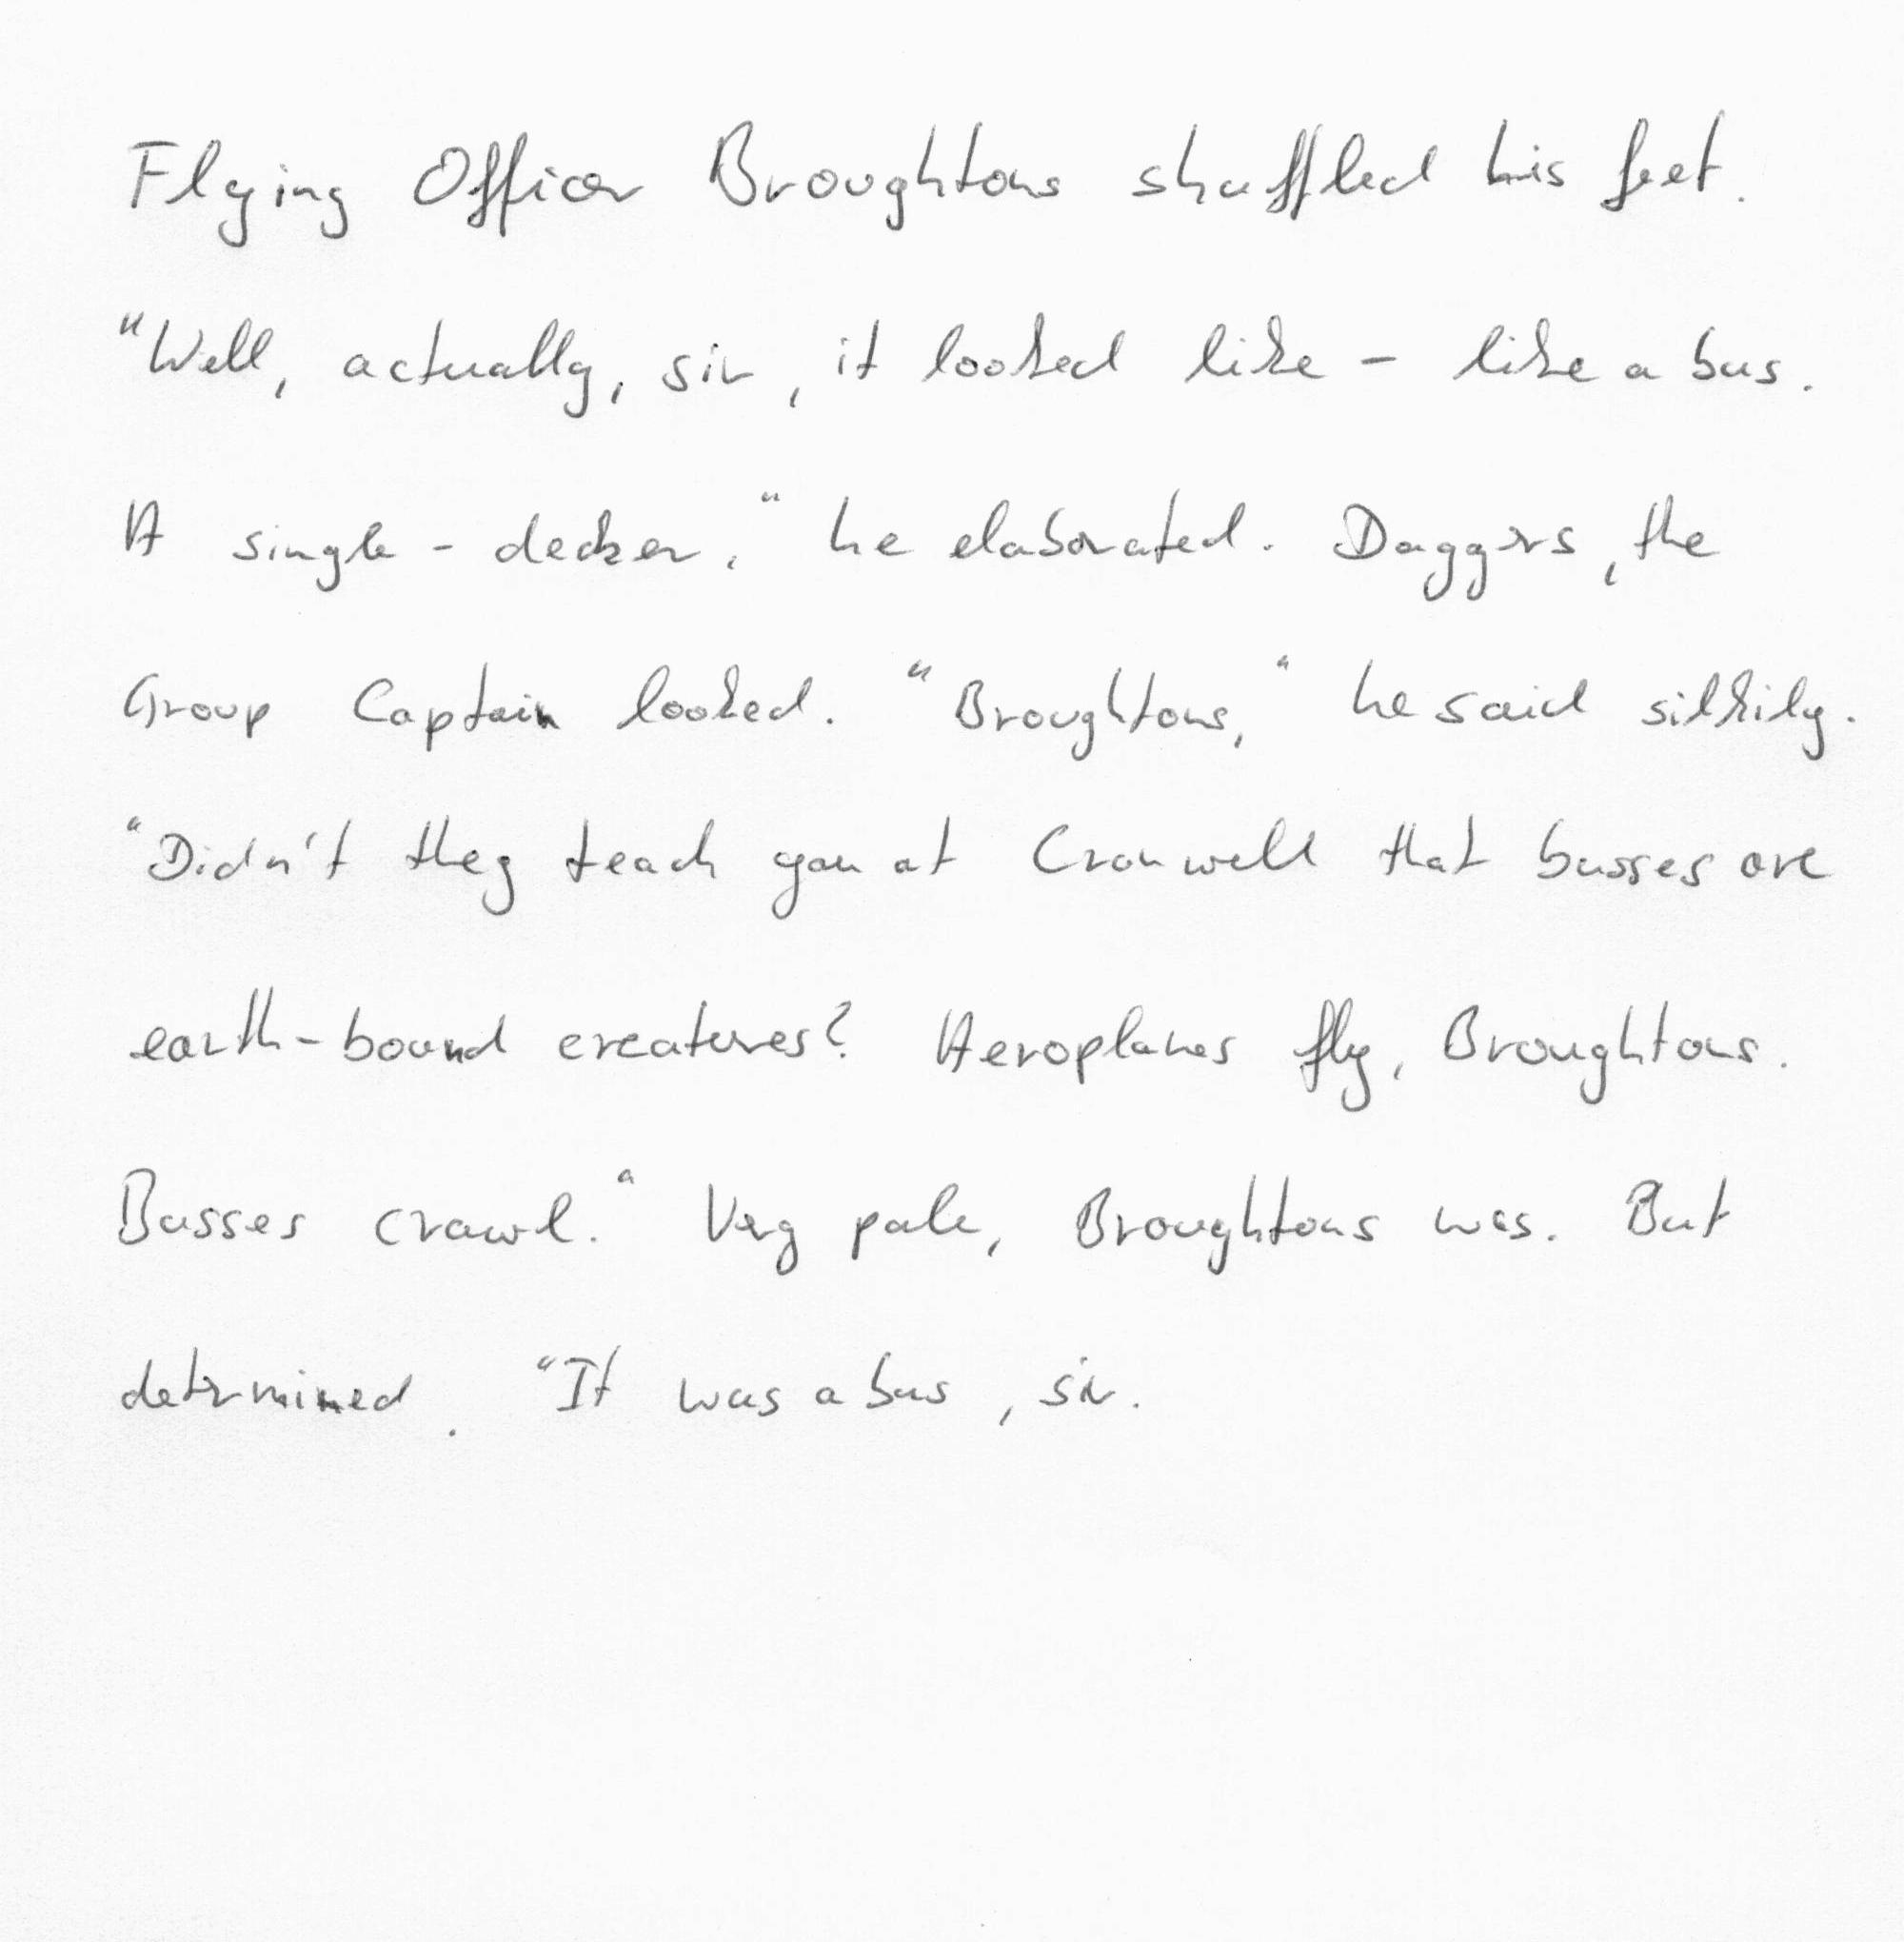 Flying Officer Broughtons shuffled his feet.
"Well, actually, sir, it looked like - like a bus.
A single - decker," he elaborated. Daggers, the
Group Captain looked. "Broughtons," he said silkily.
"Didn't they teach you at Cranwell that busses are
earth-bound creatures? Aeroplanes fly, Broughtons.
Busses crawl." Very pale, Broughtons was. But
determined. "It was a bus, sir.